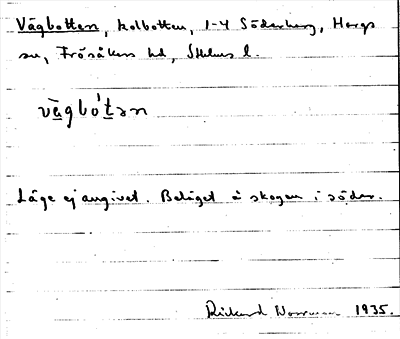 Vägbotten, kolbotten, 1-4 Söderberg, Hargs
sn, Frösåkers hd, Sthlms l.
vä̀gbo'tən
Läge ej angivet. Beläget å skogen i söder.
Rickard Norrman 1935.